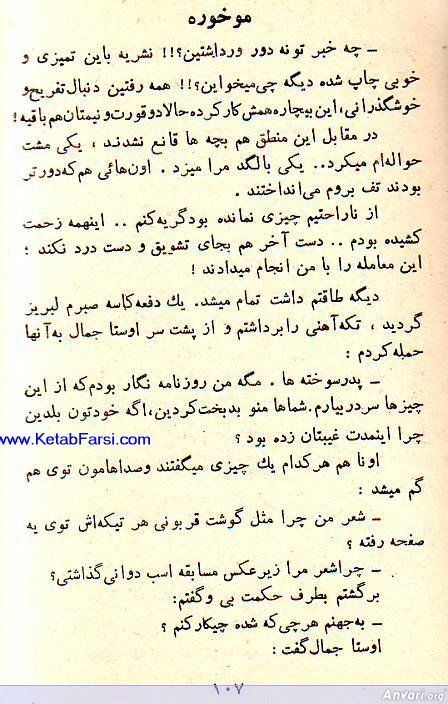 موخوره
ـ چه خبر تونه دور ورداشتین؟!! نشریه باین تمیزی و
خوبی چاپ شده دیگه چی میخواین؟!! همه رفتین دنبال تفریح و
خوشگذرانی، این بیچاره همش کار کرده حالا دو قورت و نیمتان هم باقیه!
در مقابل این منطق هم بچه ها قانع نشدند ، یکی مشت
حواله‌ام میکرد.. یکی بالگد مرا میزد . اون‌هائی هم که دورتر
بودند تف بروم می‌انداختند .
از ناراحتیم چیزی نمانده بود گریه کنم .. اینهمه زحمت
کشیده بودم .. دست آخر هم بجای تشویق و دست درد نکند ؛
این معامله را با من انجام میدادند !
دیگه طاقتم داشت تمام میشد. یك دفعه کاسه صبرم لبریز
گردید ، تکه‌آهنی را برداشتم و از پشت سر اوستا جمال به آنها
حمله کردم :
ـ پدرسوخته ها . مگه من روزنامه نگار بودم که از این
چیزها سر در بیارم. شماها منو بدبخت کردین، اگه خودتون بلدین
چرا اینمدت غیبتان زده بود ؟
www.KetabFarsi.com
اونا هم هر کدام یك چیزی میگفتند وصداهامون توی هم
گم میشد :
ـ شعر من چرا مثل گوشت قربونی هر تیکه‌اش توی یه
صفحه رفته ؟
ـ چرا شعر مرا زیر عکس مسابقه اسب دوانی گذاشتی؟
برگشتم بطرف حکمت بی وگفتم:
ـ به‌جهنم هرچی که شده چیکار کنم ؟
اوستا جمال گفت :
۱۰۷
Anvari.org